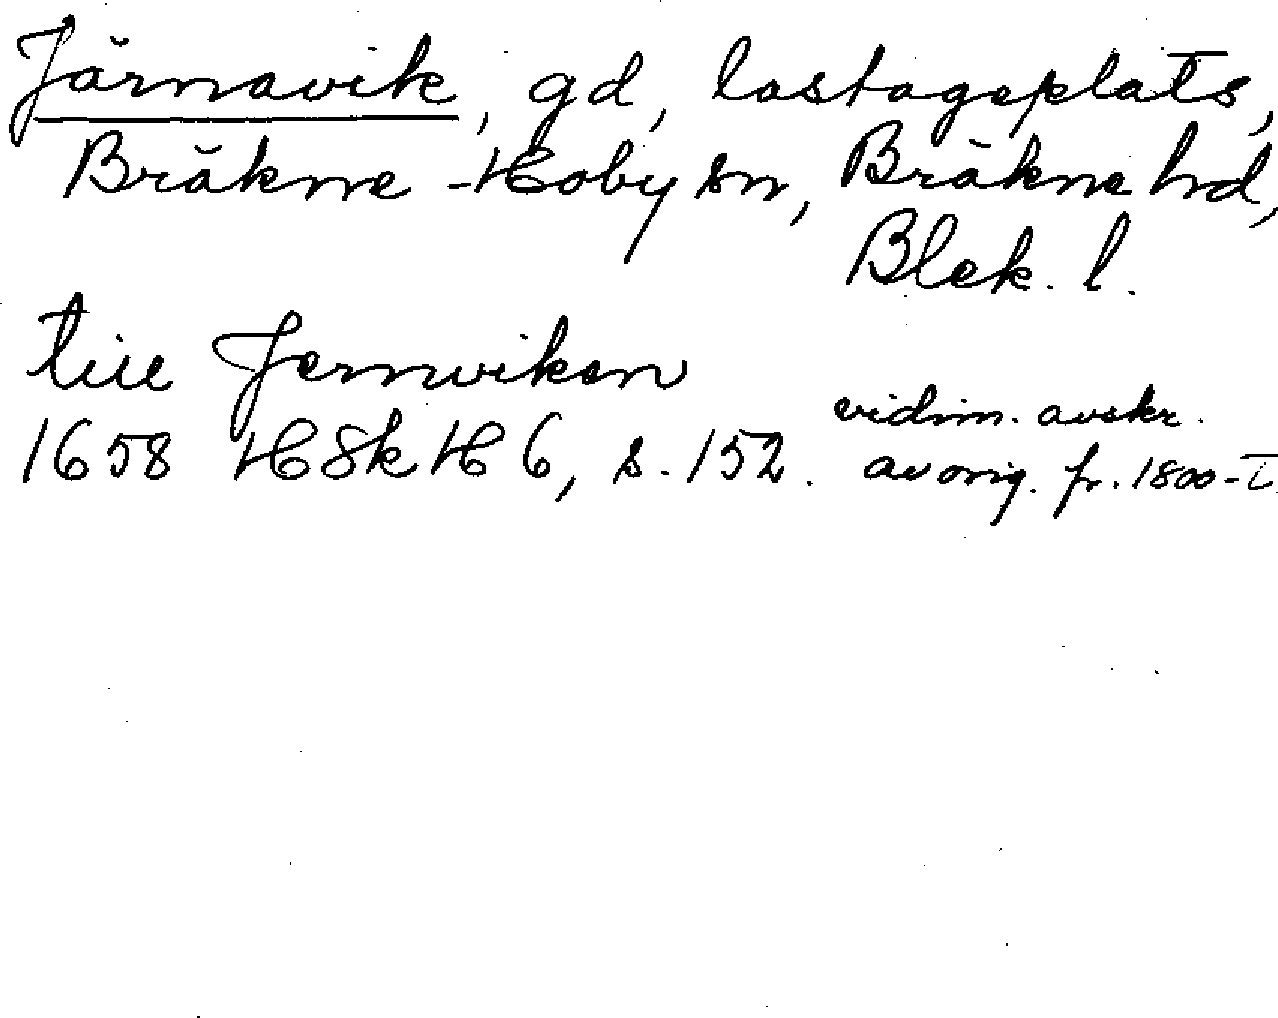 Järnavik, gd, lastageplats,
Bräkne-Hoby sn, Bräkne hd,
Blek. l.
till Jernwiken
1658 HSkH 6, s. 152. vidim. avskr.
av orig. fr. 1800-t.